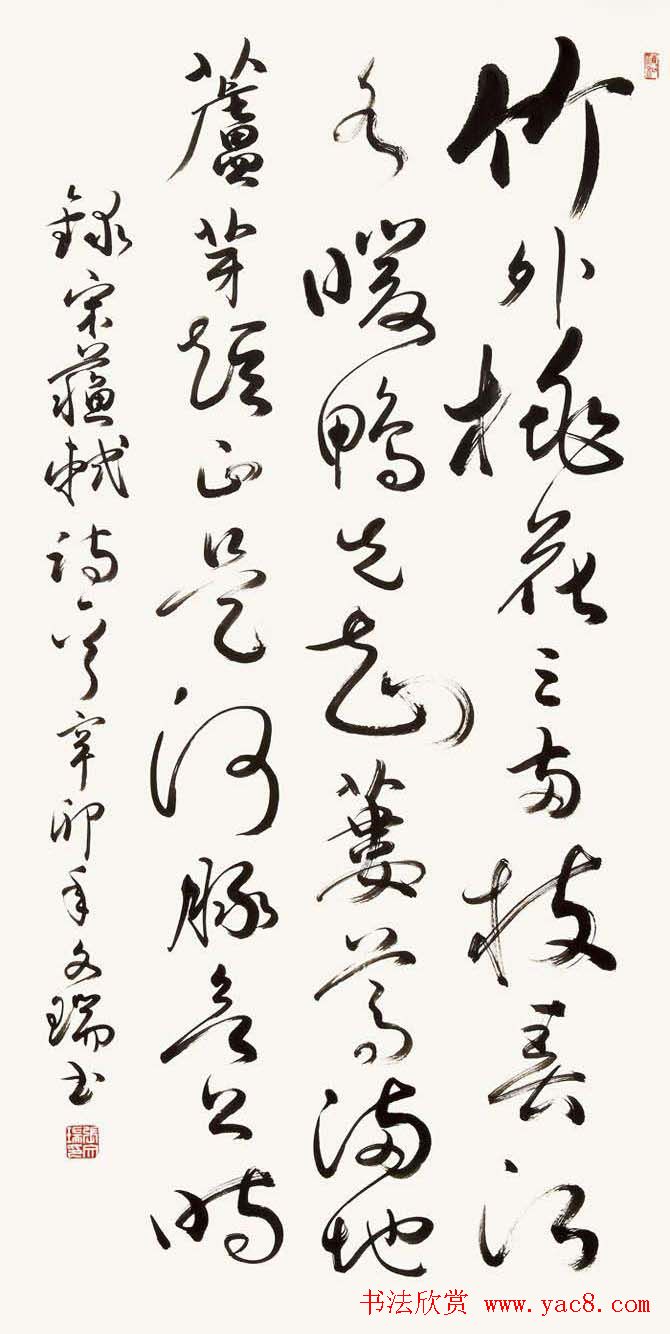 竹外桃花三兩枝春江
水暖鴨先知蔞蒿滿地
蘆芽短正是河豚欲上時
錄宋蘇軾詩一首辛卯年文瑞書
书法欣赏 www.yac8.com